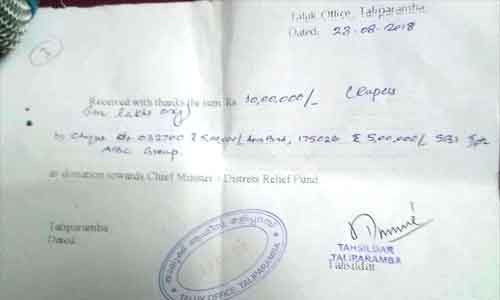 Taluk Office, Taliparamba
Dated: 23-08-2018
Received with thanks the sum Rs. 10,00,000/- (Rupees
lakhs only)
by Cheque No. 032700 ₹ 5,00,000/ 175026 ₹ 5,00,000/ SBI
Group.
as donation towards Chief Minister's Distress Relief Fund
Taliparamba
Dated
TAHSILDAR
TALIPARAMBA
Tahsildar
TALUK OFFICE, TALIPARAMBA